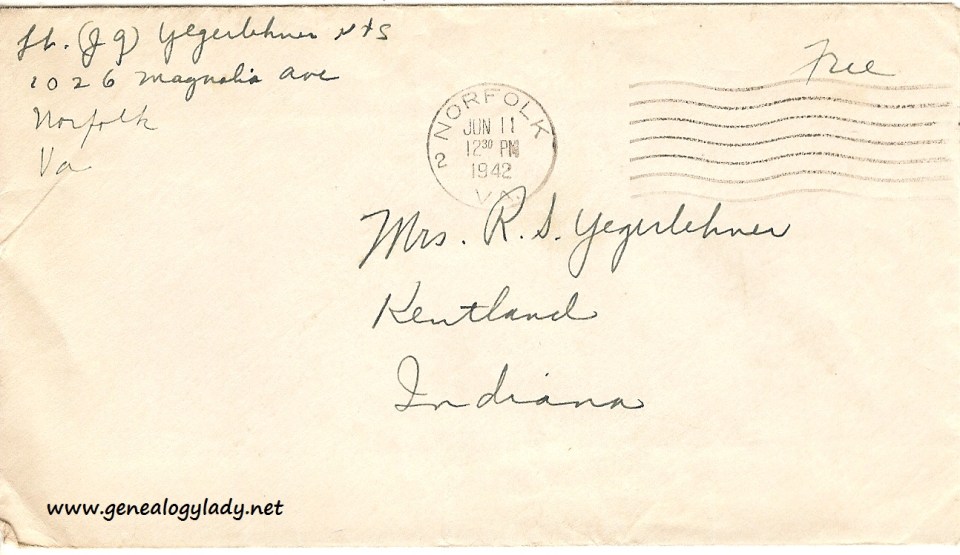 Lt. (Jg) Yegerlehner
1026 Magnolia Ave
Norfolk
Va
Free
NORFOLK
JUN 11
12³⁰ PM
1942
2
VA.
Mrs. R. S. Yegerlehner
Kentland
Indiana
www.genealogylady.net